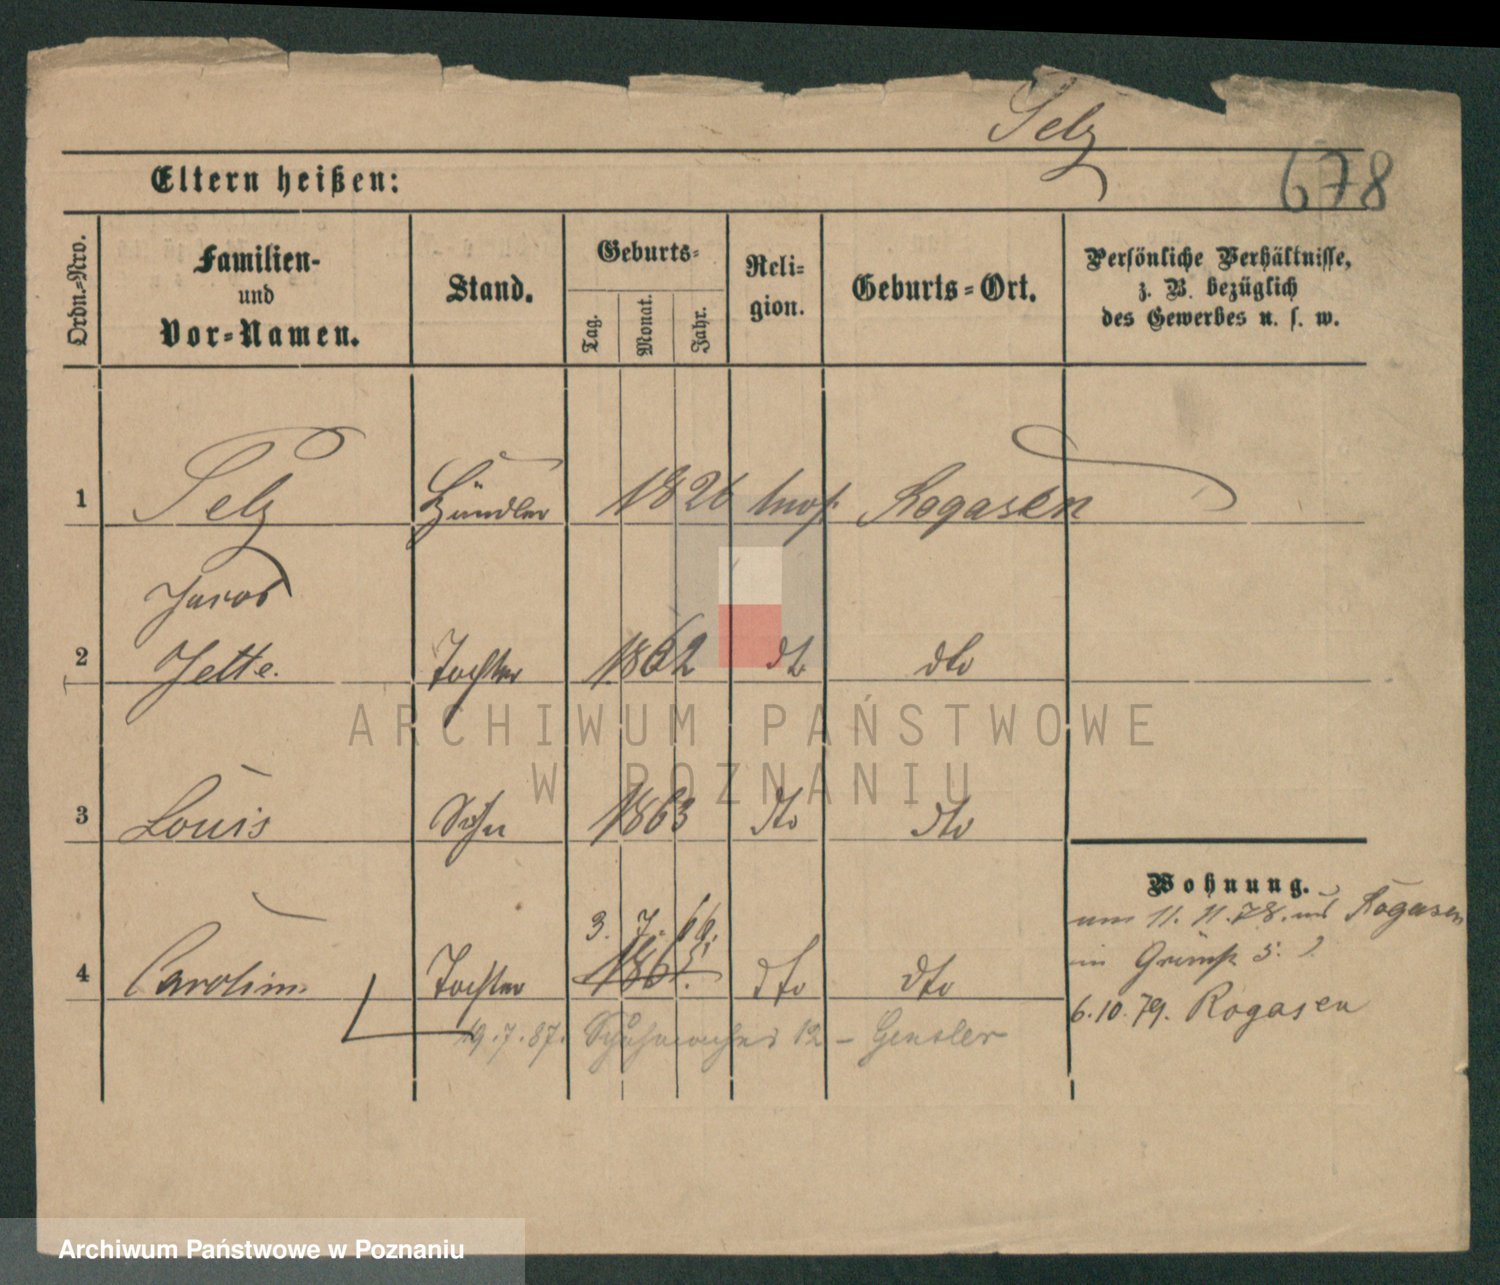 Selz
678
Eltern heißen:
Ordn.-Nro.
Familien-
und
Vor-Namen.
Stand.
Geburts-
Tag.
Monat.
Jahr.
Reli-
gion.
Geburts-Ort.
Persönliche Verhältnisse,
z. B. bezüglich
des Gewerbes u. s. w.
1
Selz
Händler
1826
mos.
Rogasen
2
Jette.
Tochter
1862
dto
dto
3
Louis
Sohn
1863
dto
dto
4
Caroline
Tochter
3. 7. 66.
1865.
dto
dto
19.7.87. 12 - Gensler
Wohnung.
11. 11. 78. Rogasen
in 5.
6.10.79. Rogasen
ARCHIWUM PAŃSTWOWE
W POZNANIU
Archiwum Państwowe w Poznaniu